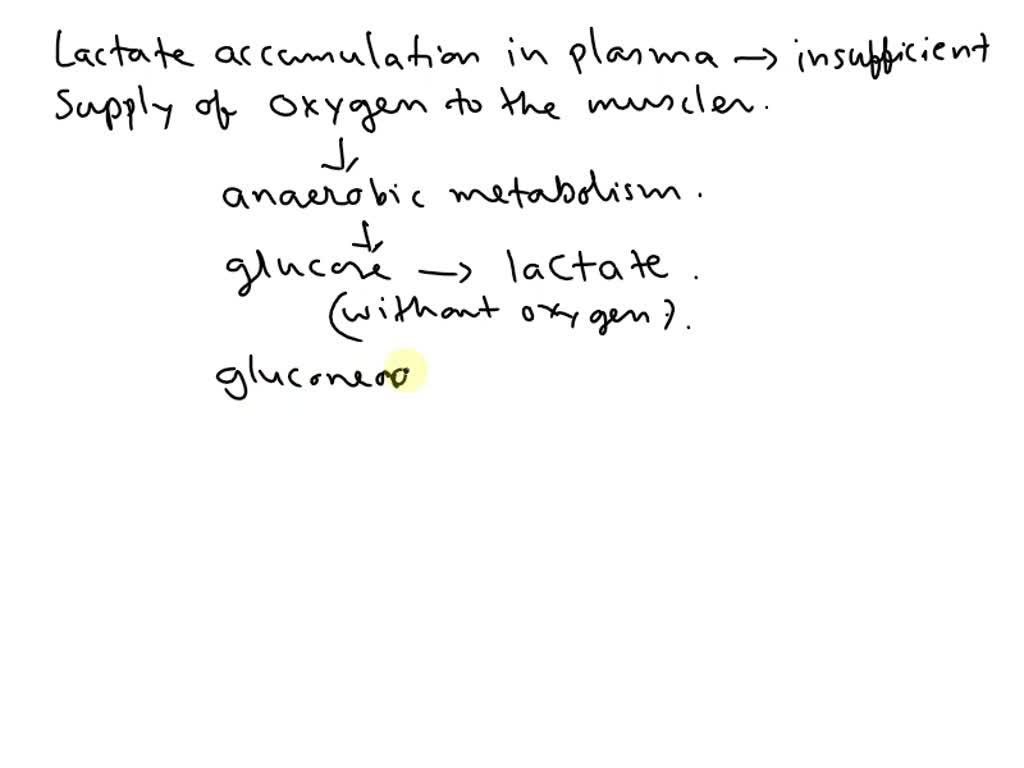 Lactate accumulation in plasma → insufficient
Supply of oxygen to the muscler.
↓
anaerobic metabolism.
↓
glucose → lactate.
(without oxygen).
gluconeoo